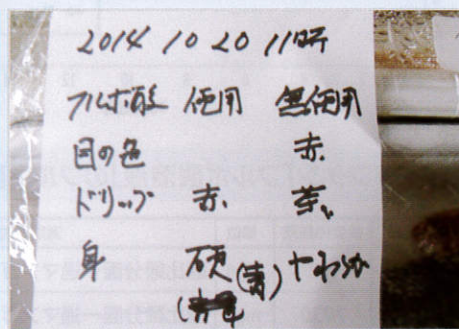 2014 10 20 11時
フルボ酸 使用 無使用
目の色 赤
ドリップ 赤 茶
身 硬(青) やわらか